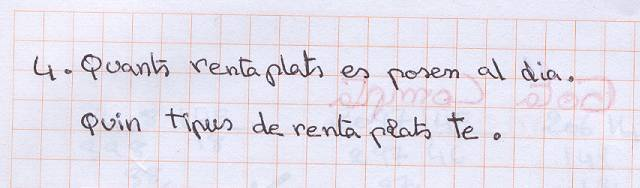 4. Quants rentaplats es posen al dia.
Quin tipus de renta plats te.